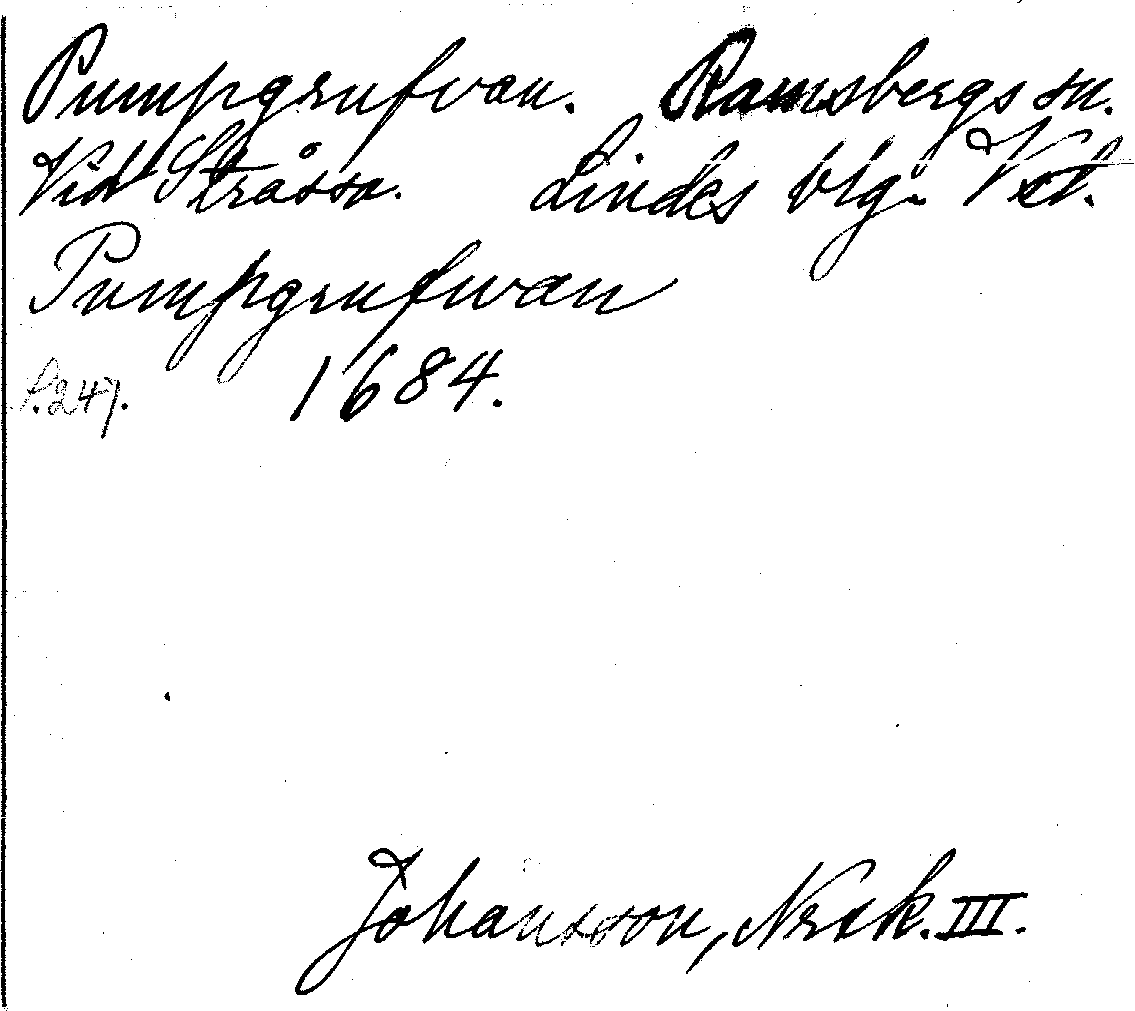 Pumpgrufvan. Ramsbergs sn.
Vid Stråssa. Lindes blg. Vstl.
Pumpgrufwan
s. 247. 1684.
Johansson, Nrsk. III.